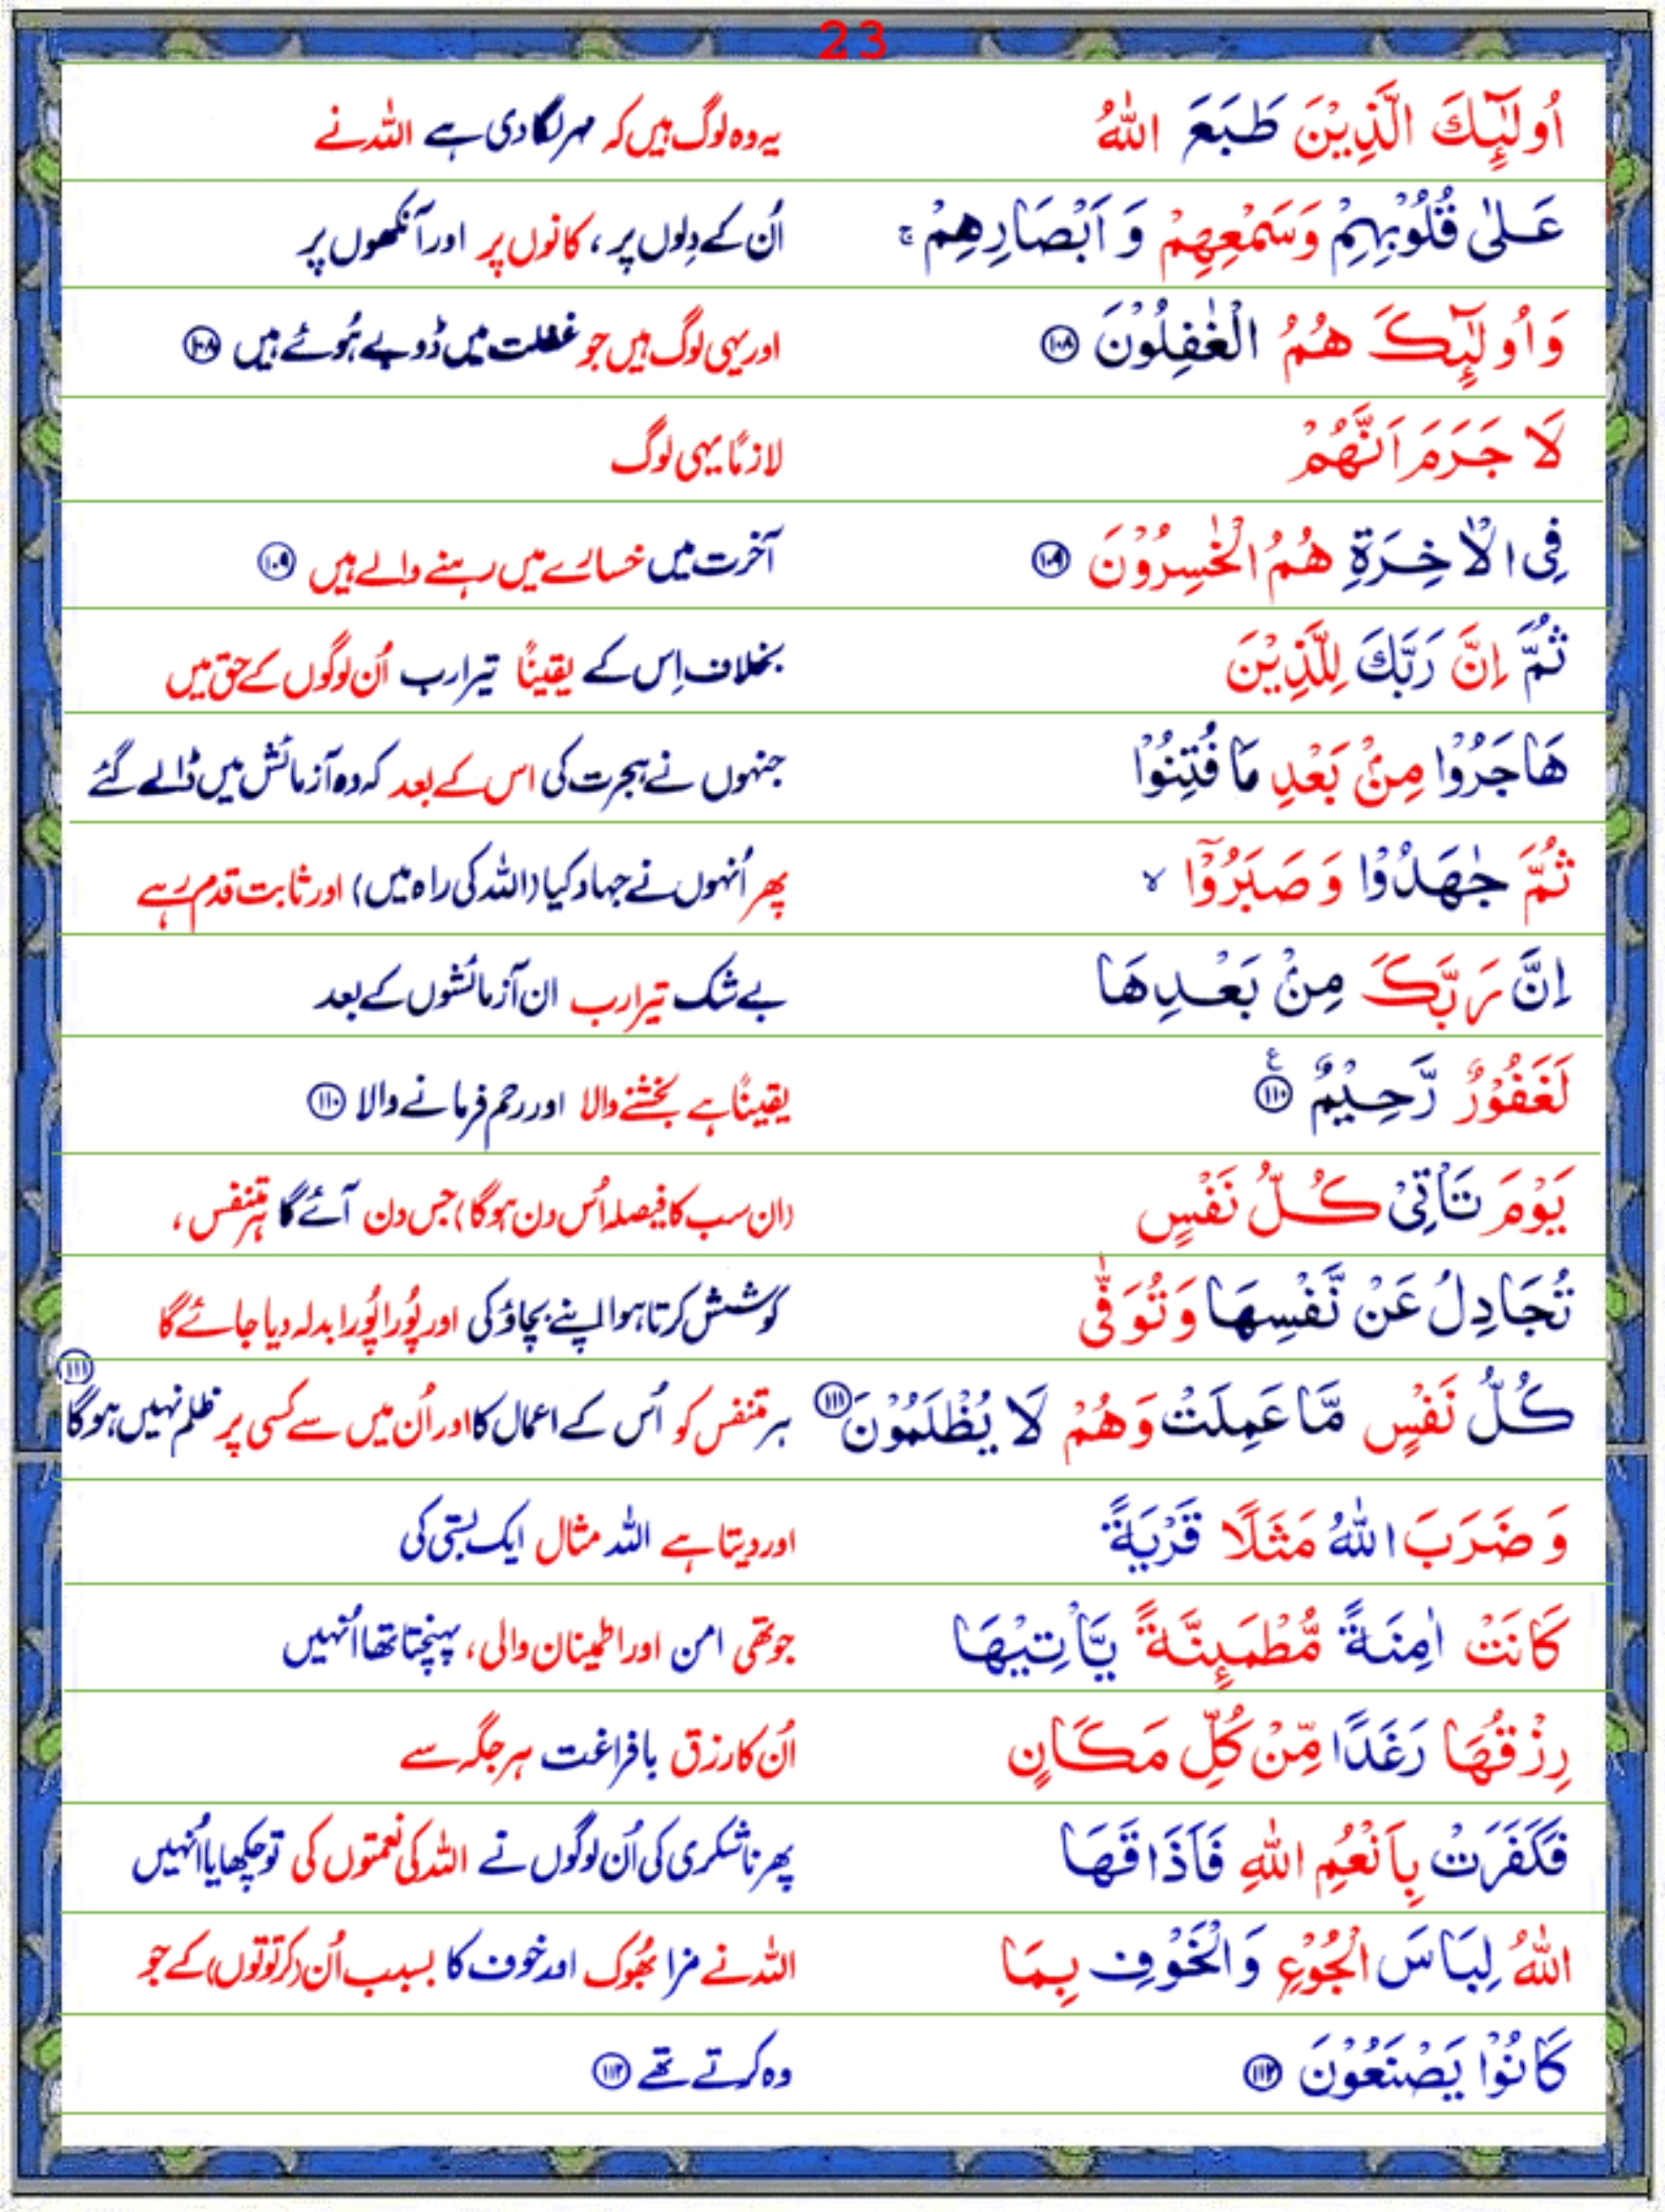 23
اُولٰٓئِكَ الَّذِيْنَ طَبَعَ اللّٰهُ یہ وہ لوگ ہیں کہ مہر لگادی ہے اللہ نے
عَلٰى قُلُوْبِهِمْ وَسَمْعِهِمْ وَ اَبْصَارِهِمْ ۚ اُن کے دِلوں پر ، کانوں پر اور آنکھوں پر
وَاُولٰٓئِكَ هُمُ الْغٰفِلُوْنَ ۱۰۸ اور یہی لوگ ہیں جو غفلت میں ڈوبے ہُوئے ہیں ۱۰۸
لَا جَرَمَ اَنَّهُمْ لازمًا یہی لوگ
فِى الْاٰخِرَةِ هُمُ الْخٰسِرُوْنَ ۱۰۹ آخرت میں خسارے میں رہنے والے ہیں ۱۰۹
ثُمَّ اِنَّ رَبَّكَ لِلَّذِيْنَ بخلاف اِس کے یقینًا تیرا رب اُن لوگوں کے حق میں
هَاجَرُوْا مِنْۢ بَعْدِ مَا فُتِنُوْا جنہوں نے ہجرت کی اس کے بعد کہ وہ آزمائش میں ڈالے گئے
ثُمَّ جٰهَدُوْا وَ صَبَرُوْۤا ۙ پھر اُنہوں نے جہاد کیا (اللہ کی راہ میں) اور ثابت قدم رہے
اِنَّ رَبَّكَ مِنْۢ بَعْدِهَا بے شک تیرا رب ان آزمائشوں کے بعد
لَغَفُوْرٌ رَّحِيْمٌ ۱۱۰ ع یقینًا ہے بخشنے والا اور رحم فرمانے والا ۱۱۰
يَوْمَ تَاْتِىْ كُلُّ نَفْسٍ (ان سب کا فیصلہ اُس دن ہوگا) جس دن آئے گا ہر متنفس ،
تُجَادِلُ عَنْ نَّفْسِهَا وَتُوَفّٰى کوشش کرتا ہوا اپنے بچاؤ کی اور پُورا پُورا بدلہ دیا جائے گا
كُلُّ نَفْسٍ مَّا عَمِلَتْ وَهُمْ لَا يُظْلَمُوْنَ ۱۱۱ ہر متنفس کو اُس کے اعمال کا اور اُن میں سے کسی پر ظلم نہیں ہوگا ۱۱۱
وَ ضَرَبَ اللّٰهُ مَثَلًا قَرْيَةً اور دیتا ہے اللہ مثال ایک بستی کی
كَانَتْ اٰمِنَةً مُّطْمَئِنَّةً يَّاْتِيْهَا جو تھی امن اور اطمینان والی ، پہنچتا تھا اُنہیں
رِزْقُهَا رَغَدًا مِّنْ كُلِّ مَكَانٍ اُن کا رزق بافراغت ہر جگہ سے
فَكَفَرَتْ بِاَنْعُمِ اللّٰهِ فَاَذَاقَهَا پھر ناشکری کی اُن لوگوں نے اللہ کی نعمتوں کی تو چکھایا اُنہیں
اللّٰهُ لِبَاسَ الْجُوْعِ وَالْخَوْفِ بِمَا اللہ نے مزا بھُوک اور خوف کا بسبب اُن (کرتوتوں) کے جو
كَانُوْا يَصْنَعُوْنَ ۱۱۲ وہ کرتے تھے ۱۱۲